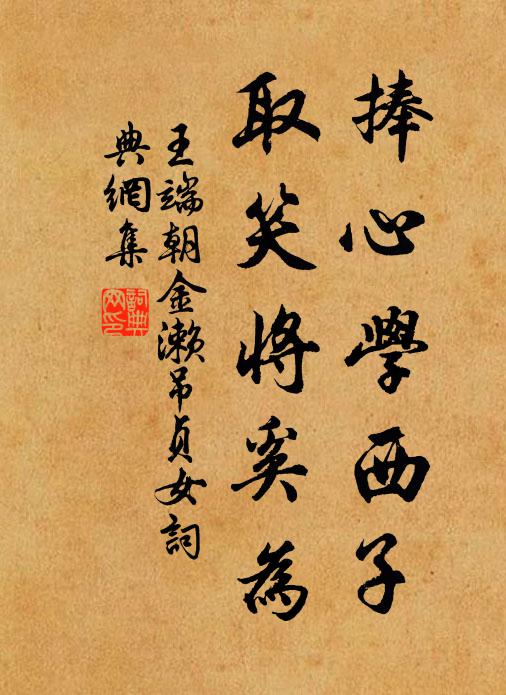 捧心學西子
取笑將奚為
王端朝金瀨吊貞女詞
典網集
詞典
网印